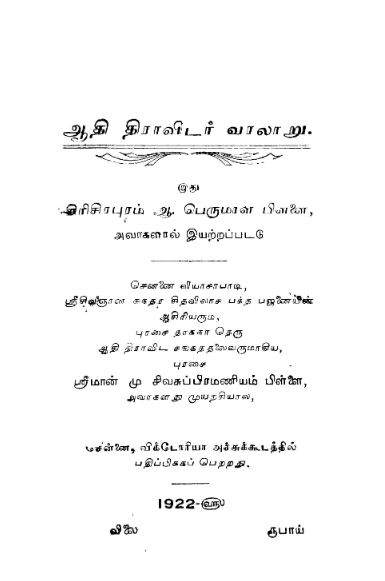 ஆதி திராவிடர் வரலாறு.
இது
திரிசிரபுரம் ஆ. பெருமாள் பிள்ளை,
அவர்களால் இயற்றப்பட்டு
சென்னை வியாசர்பாடி,
ஸ்ரீசிவஞான சுகந்த சித்விலாச பக்த பஜனையின்
ஆசிரியரும்,
புரசை தாக்கர் தெரு
ஆதி திராவிட சங்கத்தலைவருமாகிய,
புரசை
ஸ்ரீமான் மு சிவசுப்பிரமணியம் பிள்ளை,
அவர்களது முயற்சியால்,
சென்னை, விக்டோரியா அச்சுக்கூடத்தில்
பதிப்பிக்கப் பெற்றது.
1922-௵
விலை ரூபாய்